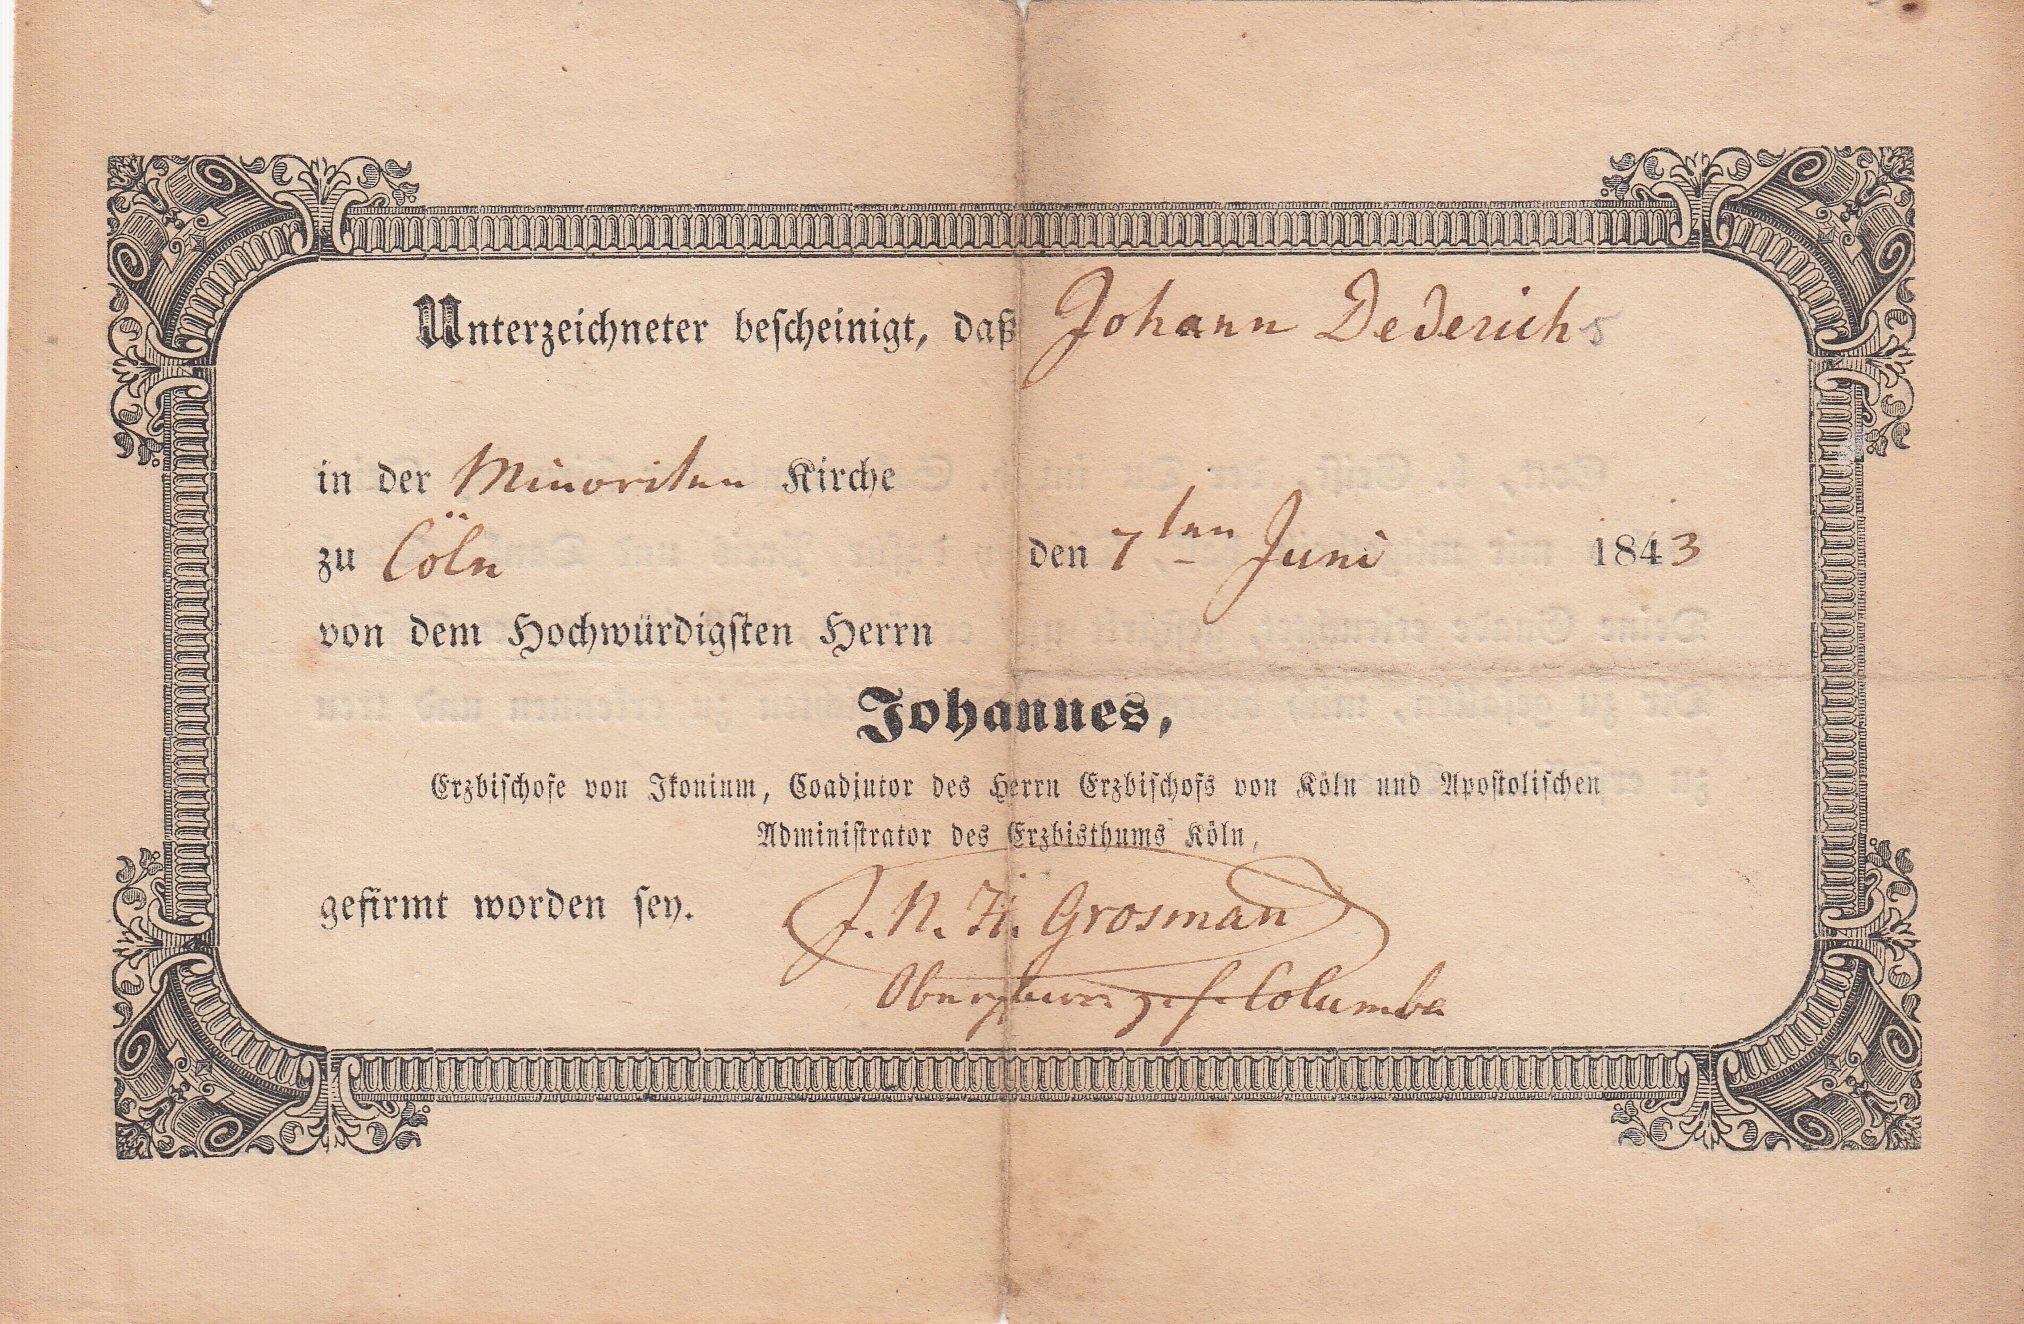 Unterzeichneter bescheinigt, daß Johann Dederichs
in der Minoriten Kirche
zu Cöln den 7ten Juni 1843
von dem Hochwürdigsten Herrn
Johannes,
Erzbischofe von Ikonium, Coadjutor des Herrn Erzbischofs von Köln und Apostolischen
Administrator des Erzbisthums Köln,
gefirmt worden sey.
J. N. H. Grosman
Oberpfarrer z. St. Columba